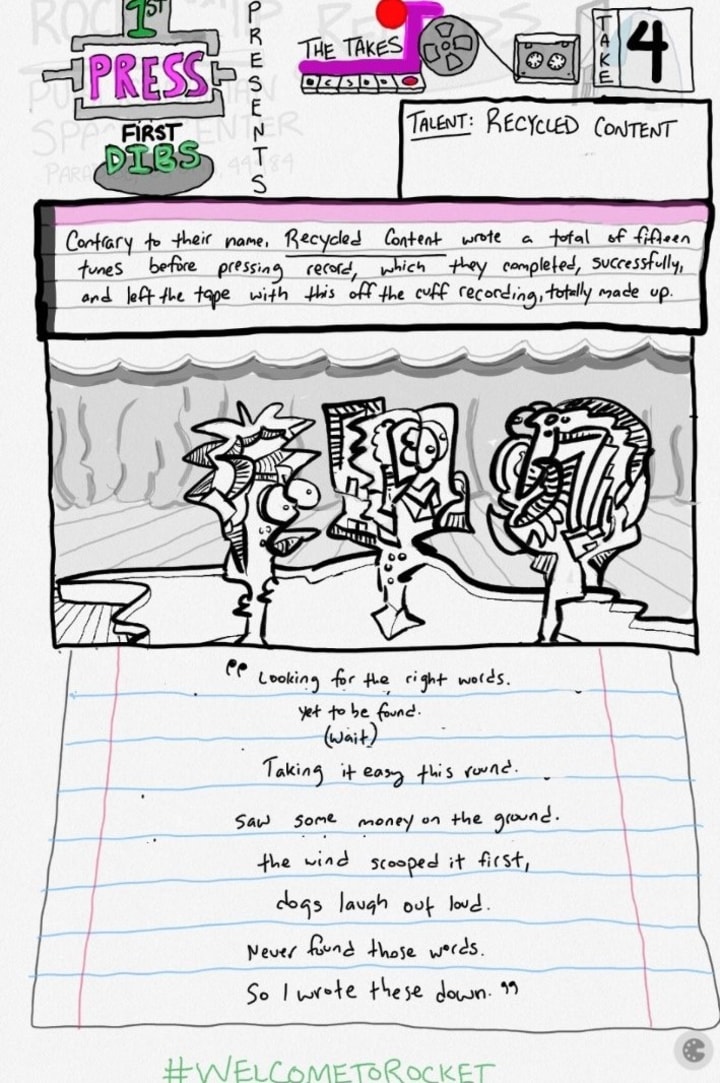 1ST
PRESS
FIRST
DIBS
PRESENTS
THE TAKES
TAKE
4
TALENT: RECYCLED CONTENT
Contrary to their name, Recycled Content wrote a total of fifteen
tunes before pressing record, which they completed, successfully,
and left the tape with this off the cuff recording, totally made up.
"Looking for the right words.
yet to be found.
(wait)
Taking it easy this round.
Saw some money on the ground.
the wind scooped it first,
dogs laugh out loud.
Never found those words.
So I wrote these down."
#WELCOMETOROCKET